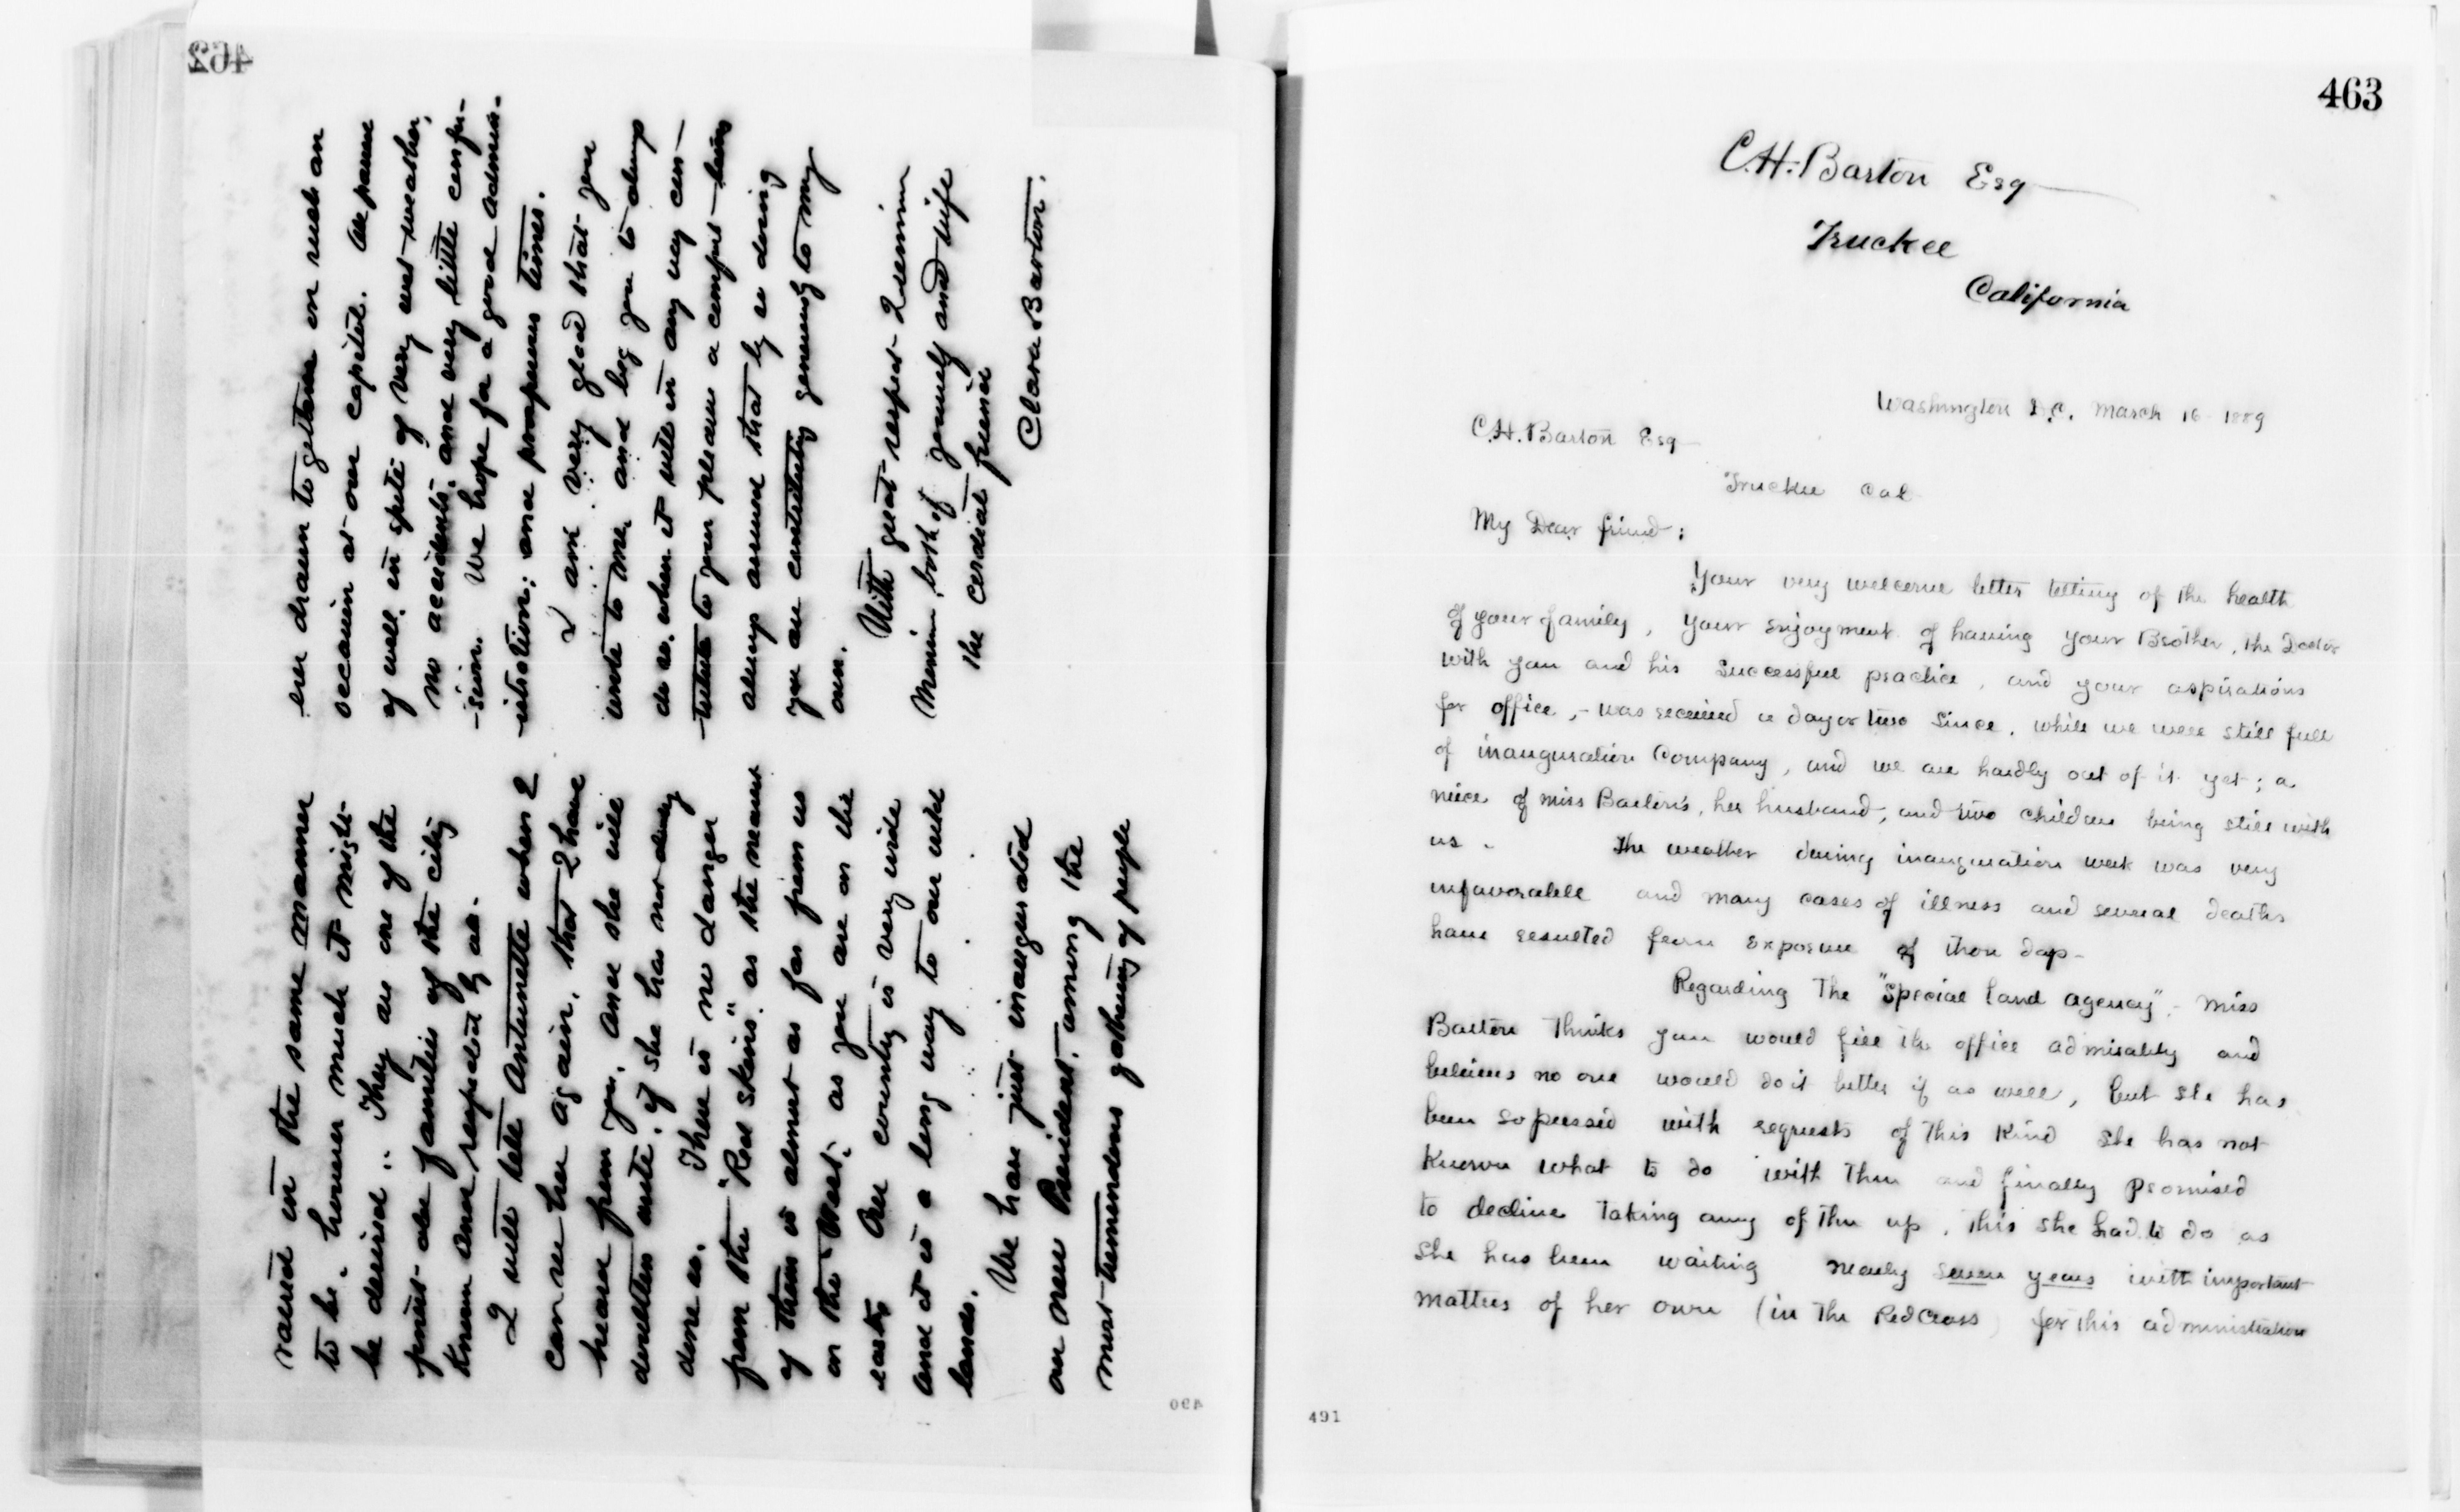 462
raised in the same manner
to be. however much it might
be desired. They are one of the
first old families of the city
known and respected by all.
I will tell Antoinette when I
can see her again, that I have
heard from you, and she will
doubtless write, if she has not already
done so. There is no danger
from the "Red skins" as the nearest
of them is almost as far from us
on the "West", as you are on the
east. Our country is very wide
and it is a long way to our wild
lands.
We have just inaugurated
our new President, among the
most tremendous gathering of people
ever drawn together on such an
occasion at our capitol. All passed
off well, in spite of very wet weather,
no accidents, and very little confu-
-sion. We hope for a good admin-
-istration; and prosperous times.
I am very glad that you
wrote to me, and beg you to always
do so, when it will in any way con-
-tribute to your pleasure or comfort - being
always assured that by so doing
you are contributing generously to my
own.
With great respect I remain
Monsieur, both of yourself and wife
the cordial friend
Clara Barton.
490
463
C.H. Barton Esq
Truckee
California
Washington D.C. March 16 1889
C.H. Barton Esq
Truckee Cal
My Dear friend:
Your very welcome letter telling of the health
of your family, your enjoyment of having your Brother, the Doctor
with you and his successful practice, and your aspirations
for office, - was received a day or two since, while we were still full
of inauguration Company, and we are hardly out of it yet; a
niece of Miss Barton's, her husband, and two children being still with
us. The weather during inauguration week was very
unfavorable and many cases of illness and several deaths
have resulted from exposure of those days -
Regarding The "Special land agency" - Miss
Barton Thinks you would fill the office admirably and
believes no one would do it better if as well, but she has
been so pressed with requests of this Kind she has not
Known what to do with Them and finally promised
to decline taking any of them up. This she had to do as
she has been waiting nearly seven years with important
matters of her own (in The Red Cross) for this administration
491